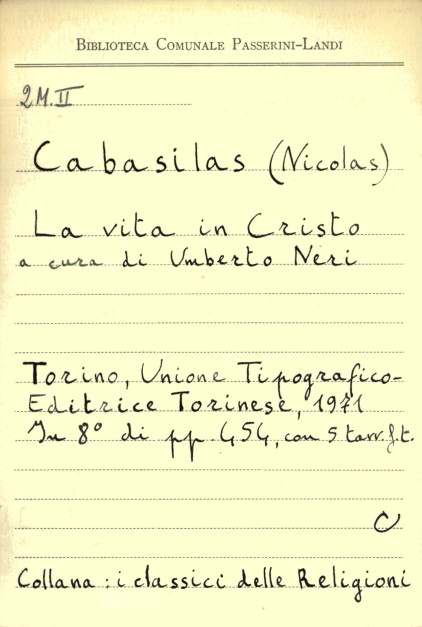 BIBLIOTECA COMUNALE PASSERINI-LANDI
2M.II
Cabasilas (Nicolas)
La vita in Cristo
a cura di Umberto Neri
Torino, Unione Tipografico-
Editrice Torinese, 1971
In 8° di pp. 454, con 5 tavv. f.t.
C
Collana : i classici delle Religioni